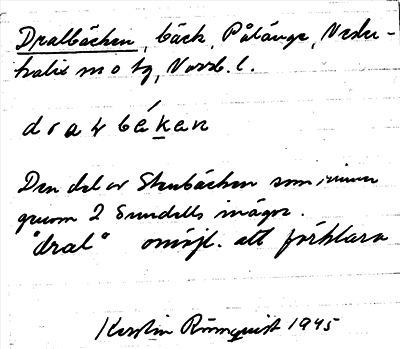 Dralbäcken, bäck, Pålänge, Neder-
kalix sn o tg, Norrb. l.
drawbéken
Den del av Stenbäcken som rinner
genom 2 Sundells inägor.
"dral" omöjl. att förklara
Kerstin Rönnquist 1945